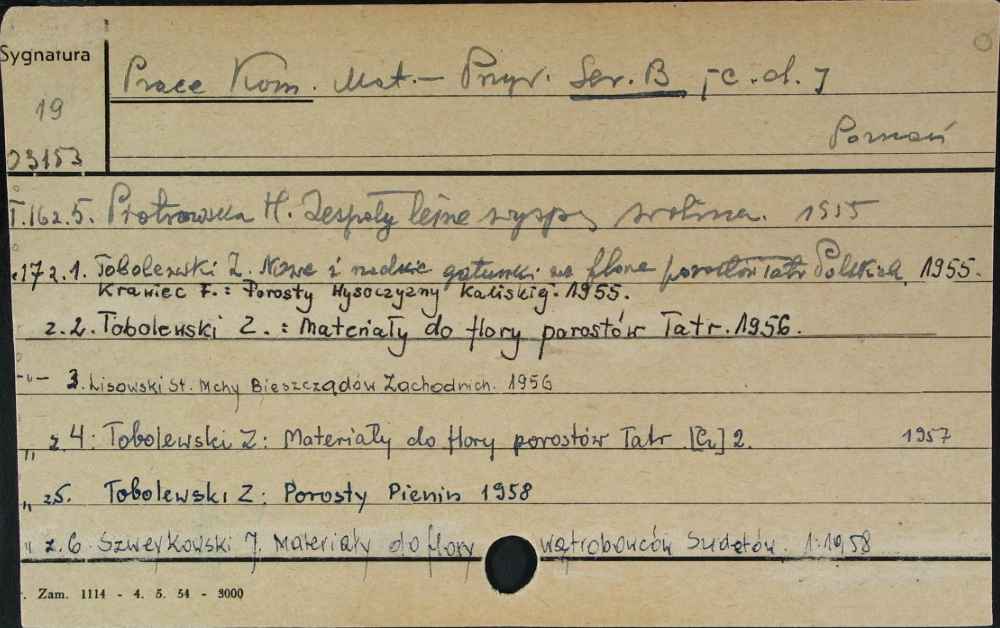 Sygnatura
Prace Kom. Mat.- Przyr. Ser. B [c. d.]
19
Poznań
23153
T.16 z.5. Piotrowska H. Zespoły leśne wyspy Wolina. 1955
17 z.1. Tobolewski Z. Nowe i rzadkie gatunki we florze porostów Tatr Polskich, 1955.
Krawiec F.: Porosty Wysoczyzny Kaliskiej. 1955.
z.2. Tobolewski Z. : Materiały do flory porostów Tatr. 1956.
-"- 3. Lisowski St. Mchy Bieszczadów Zachodnich. 1956
„ z 4: Tobolewski Z: Materiały do flory porostów Tatr [Cz] 2. 1957
„ z5. Tobolewski Z: Porosty Pienin 1958
" z.6. Szweykowski J. Materiały do flory wątrobowców Sudetów. 1. 1958
. Zam. 1114 - 4. 5. 54 - 3000